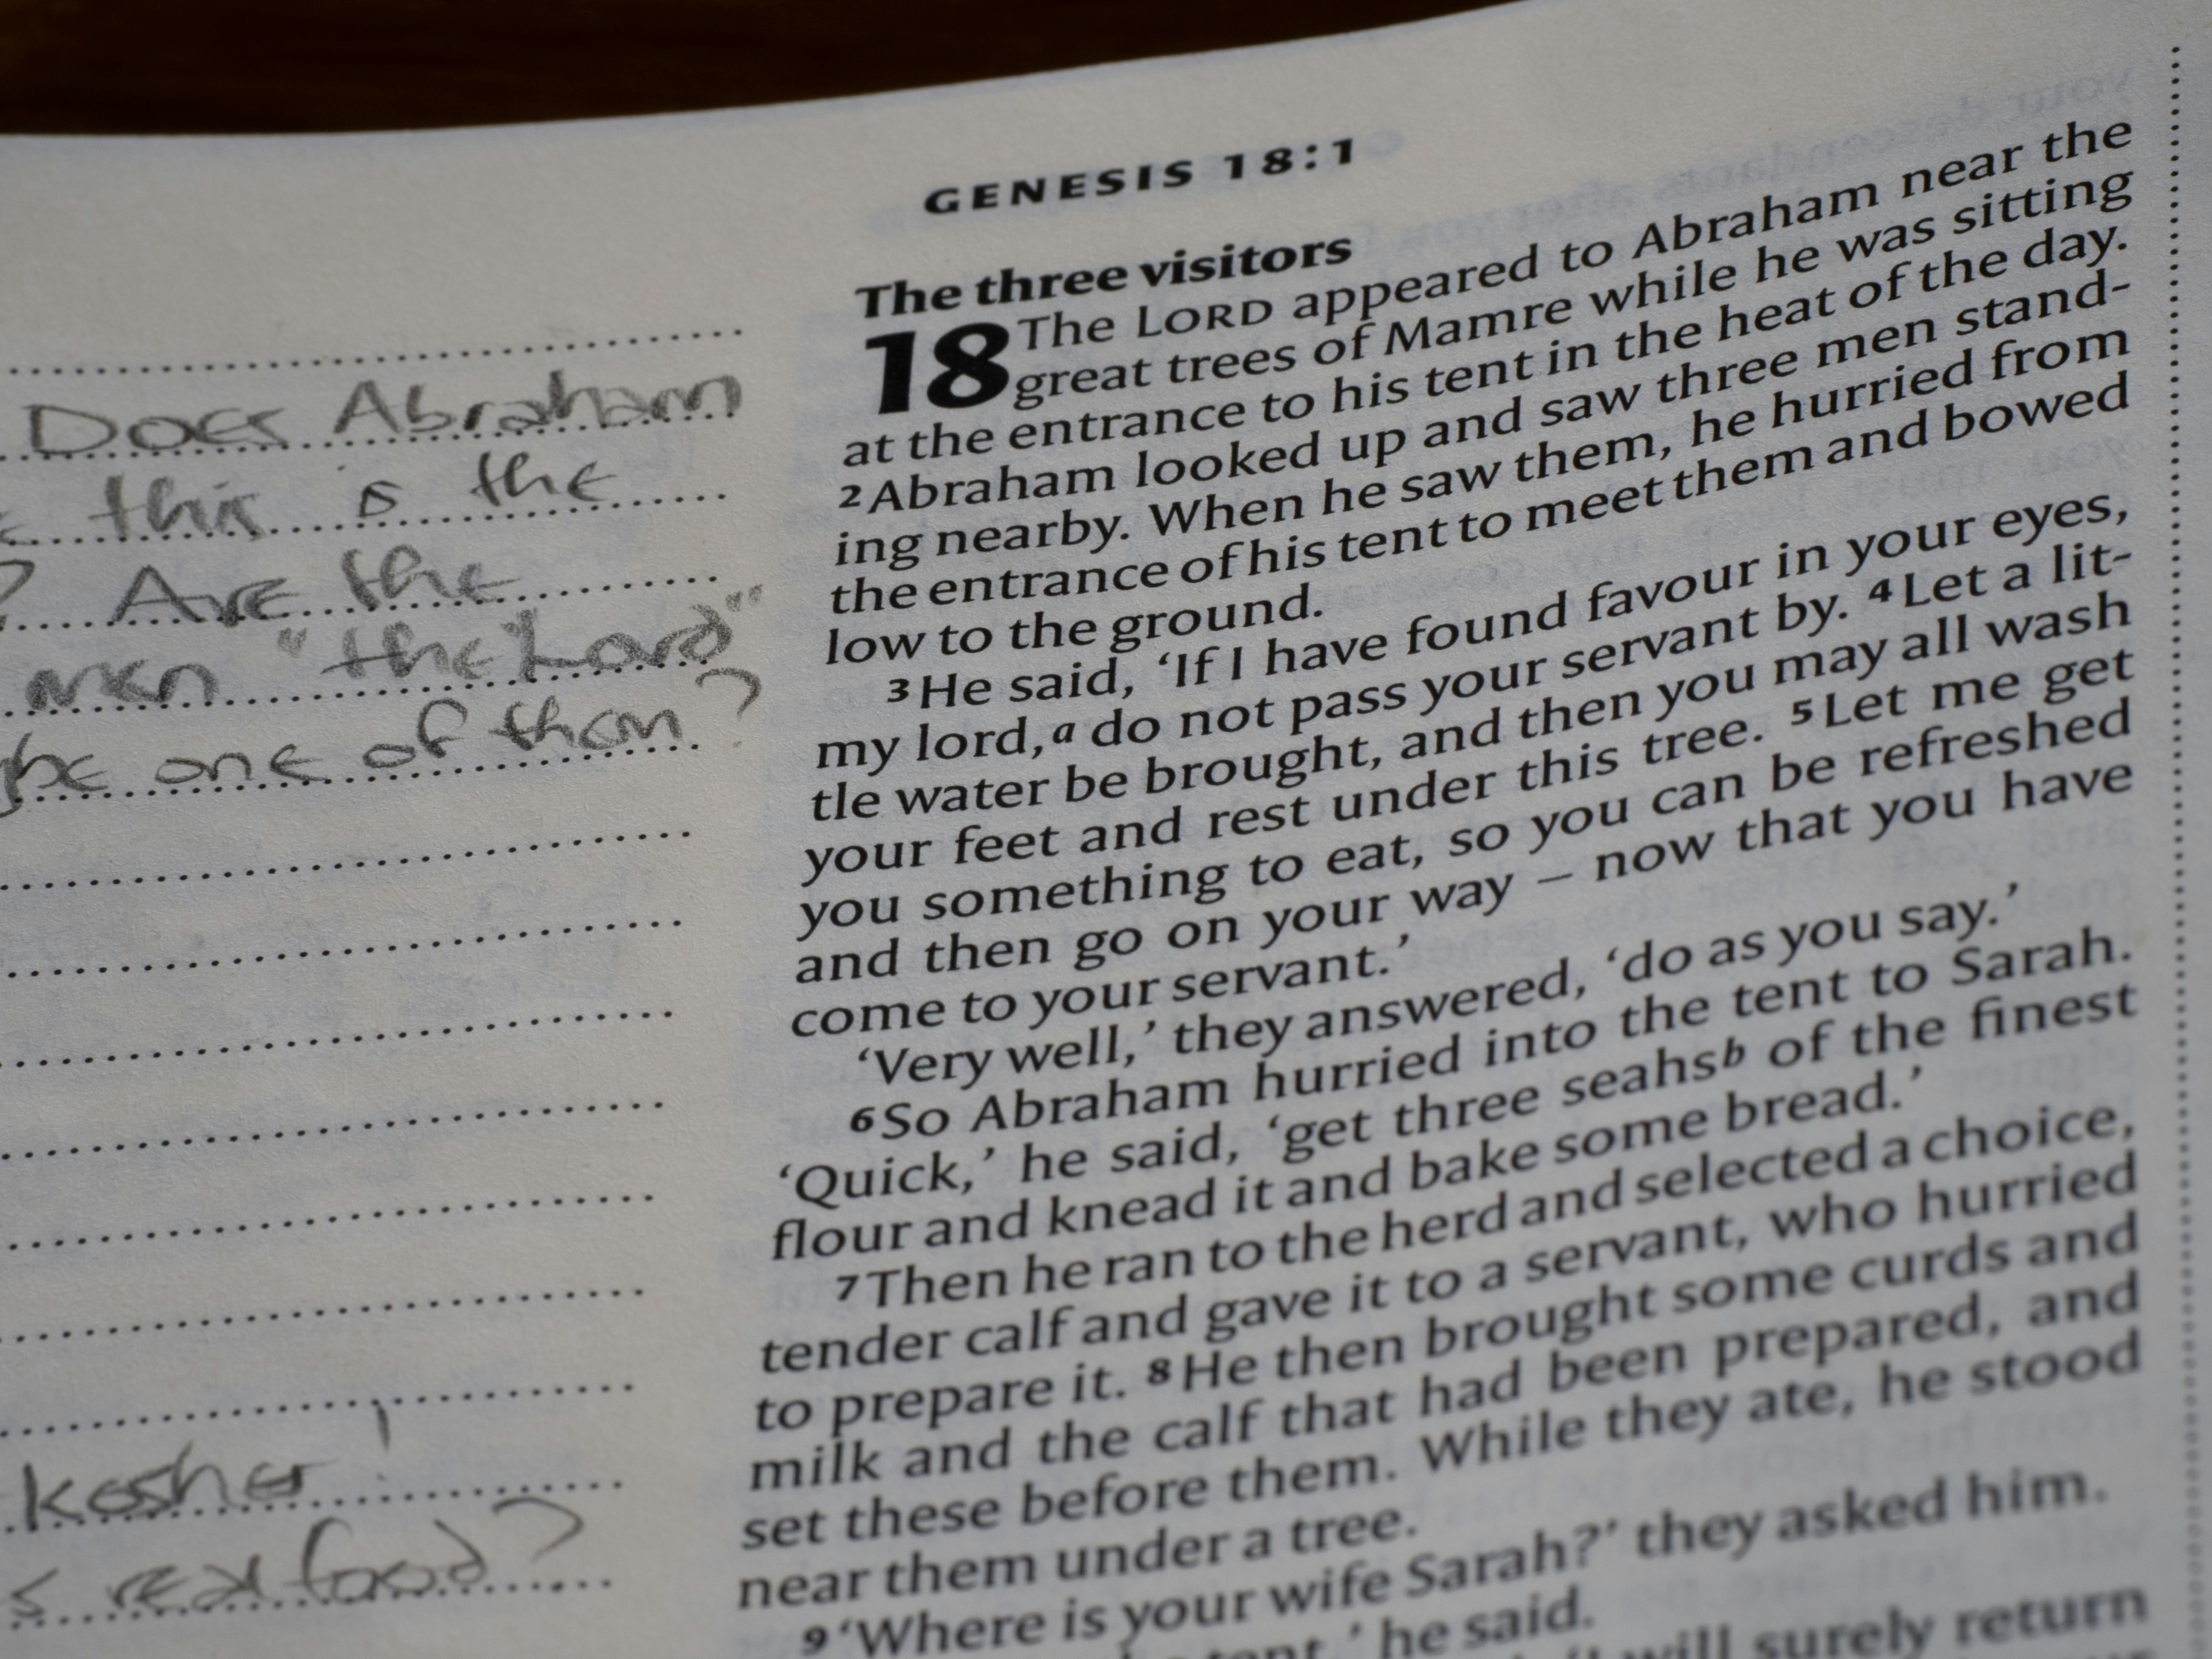 Does Abraham
this is the
? Are the
men "the Lord"
one of them?
kosher!
real food?
GENESIS 18:1
The three visitors
18 The LORD appeared to Abraham near the
great trees of Mamre while he was sitting
at the entrance to his tent in the heat of the day.
2 Abraham looked up and saw three men stand-
ing nearby. When he saw them, he hurried from
the entrance of his tent to meet them and bowed
low to the ground.
3 He said, ‘If I have found favour in your eyes,
my lord,a do not pass your servant by. 4 Let a lit-
tle water be brought, and then you may all wash
your feet and rest under this tree. 5 Let me get
you something to eat, so you can be refreshed
and then go on your way – now that you have
come to your servant.’
‘Very well,’ they answered, ‘do as you say.’
6 So Abraham hurried into the tent to Sarah.
‘Quick,’ he said, ‘get three seahsb of the finest
flour and knead it and bake some bread.’
7 Then he ran to the herd and selected a choice,
tender calf and gave it to a servant, who hurried
to prepare it. 8 He then brought some curds and
milk and the calf that had been prepared, and
set these before them. While they ate, he stood
near them under a tree.
9 ‘Where is your wife Sarah?’ they asked him.
tent,’ he said.
will surely return